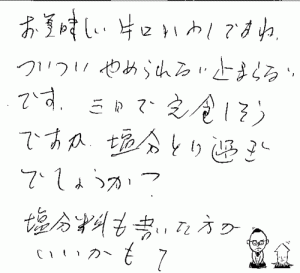 お美味しい 牛口いわしですね、
ついつい やめられない 止まらない
です。三日で完食しそう
ですが、塩分とり過ぎ
でしょうか?
塩分料も書いた方が
いいかも?